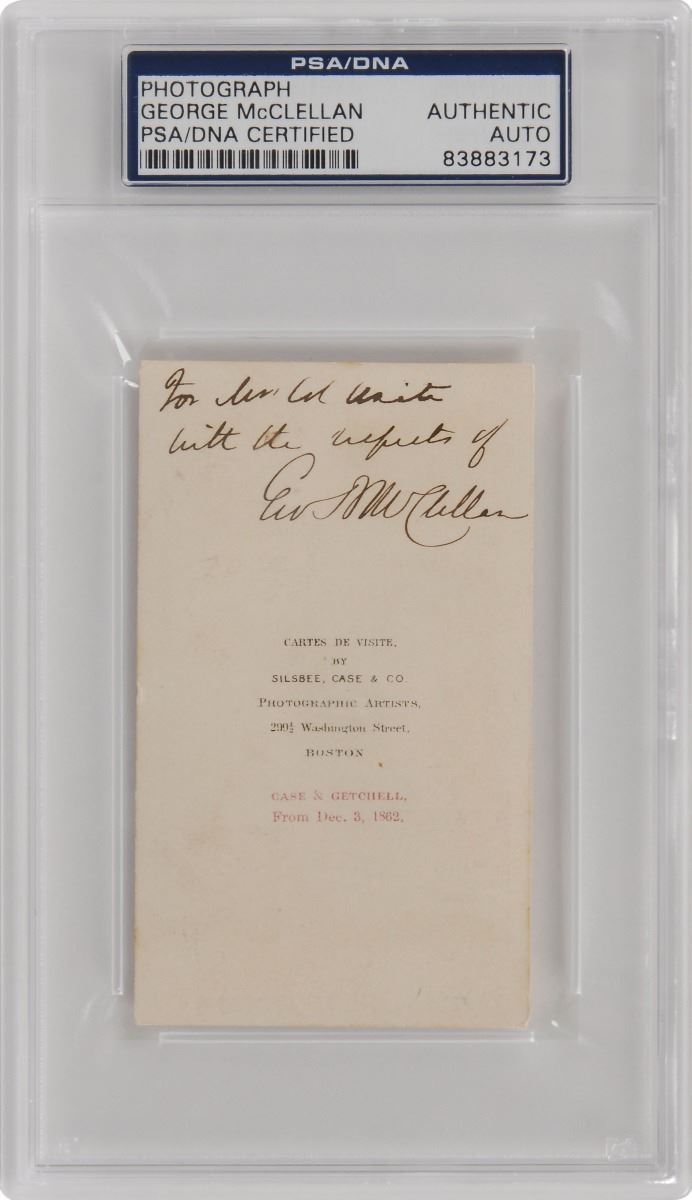 PSA/DNA
PHOTOGRAPH
GEORGE McCLELLAN
PSA/DNA CERTIFIED
AUTHENTIC
AUTO
83883173
For Mrs Col
with the respects of
Geo B McClellan
CARTES DE VISITE,
BY
SILSBEE, CASE & CO.
PHOTOGRAPHIC ARTISTS,
299½ Washington Street,
BOSTON
CASE & GETCHELL,
From Dec. 3, 1862,